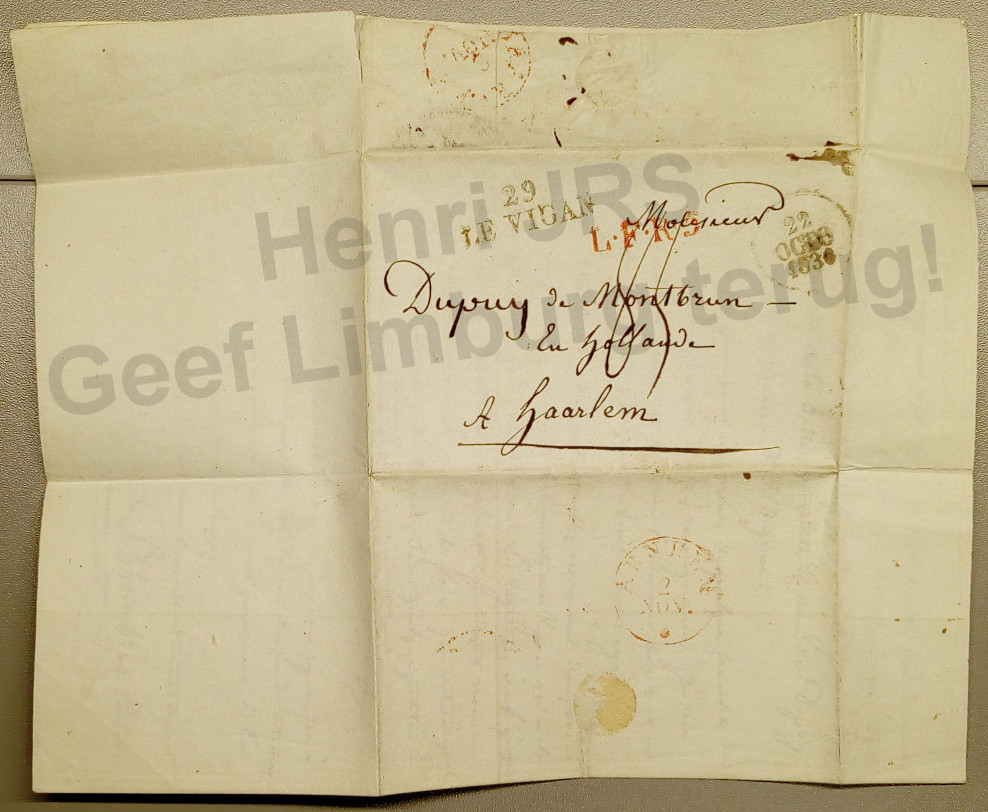 29
LE VIGAN
L.F.R.5
22
OCTO
1830
Monsieur
Dupuy de Montbrun —
En hollande
A haarlem
2
NOV.
Henri JRS
Geef Limburg terug!